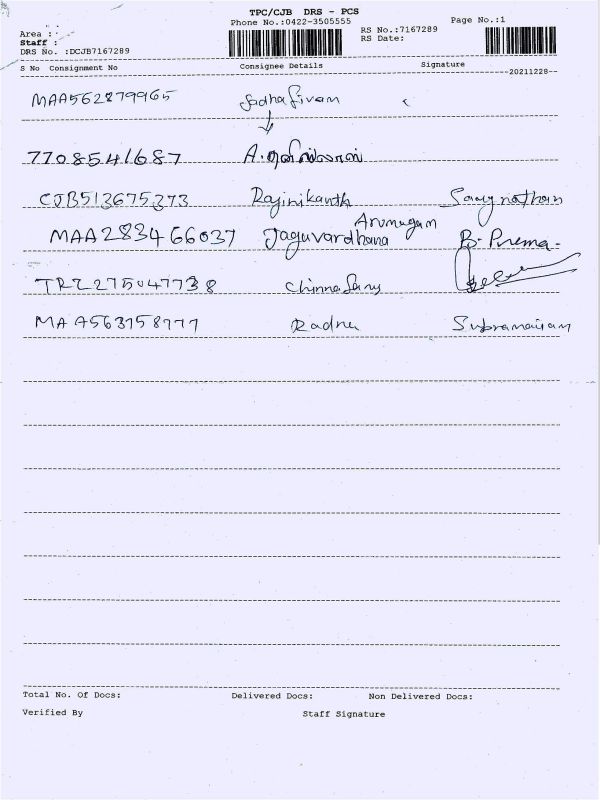 TPC/CJB DRS - PCS
Phone No.:0422-3505555
Page No.:1
Area :
Staff :
DRS No. :DCJB7167289
RS No.:7167289
RS Date:
S No Consignment No Consignee Details Signature
20211228
MAA562879965 Sadhasivam
7708541687 A.
CJB513675373 Rajinikanth
Arumugam
MAA283466037 Jaguvardhana B. Prema
TRZ275047738 Chinnasamy
MAA563758777 Radha Subramaniam
Total No. Of Docs: Delivered Docs: Non Delivered Docs:
Verified By Staff Signature